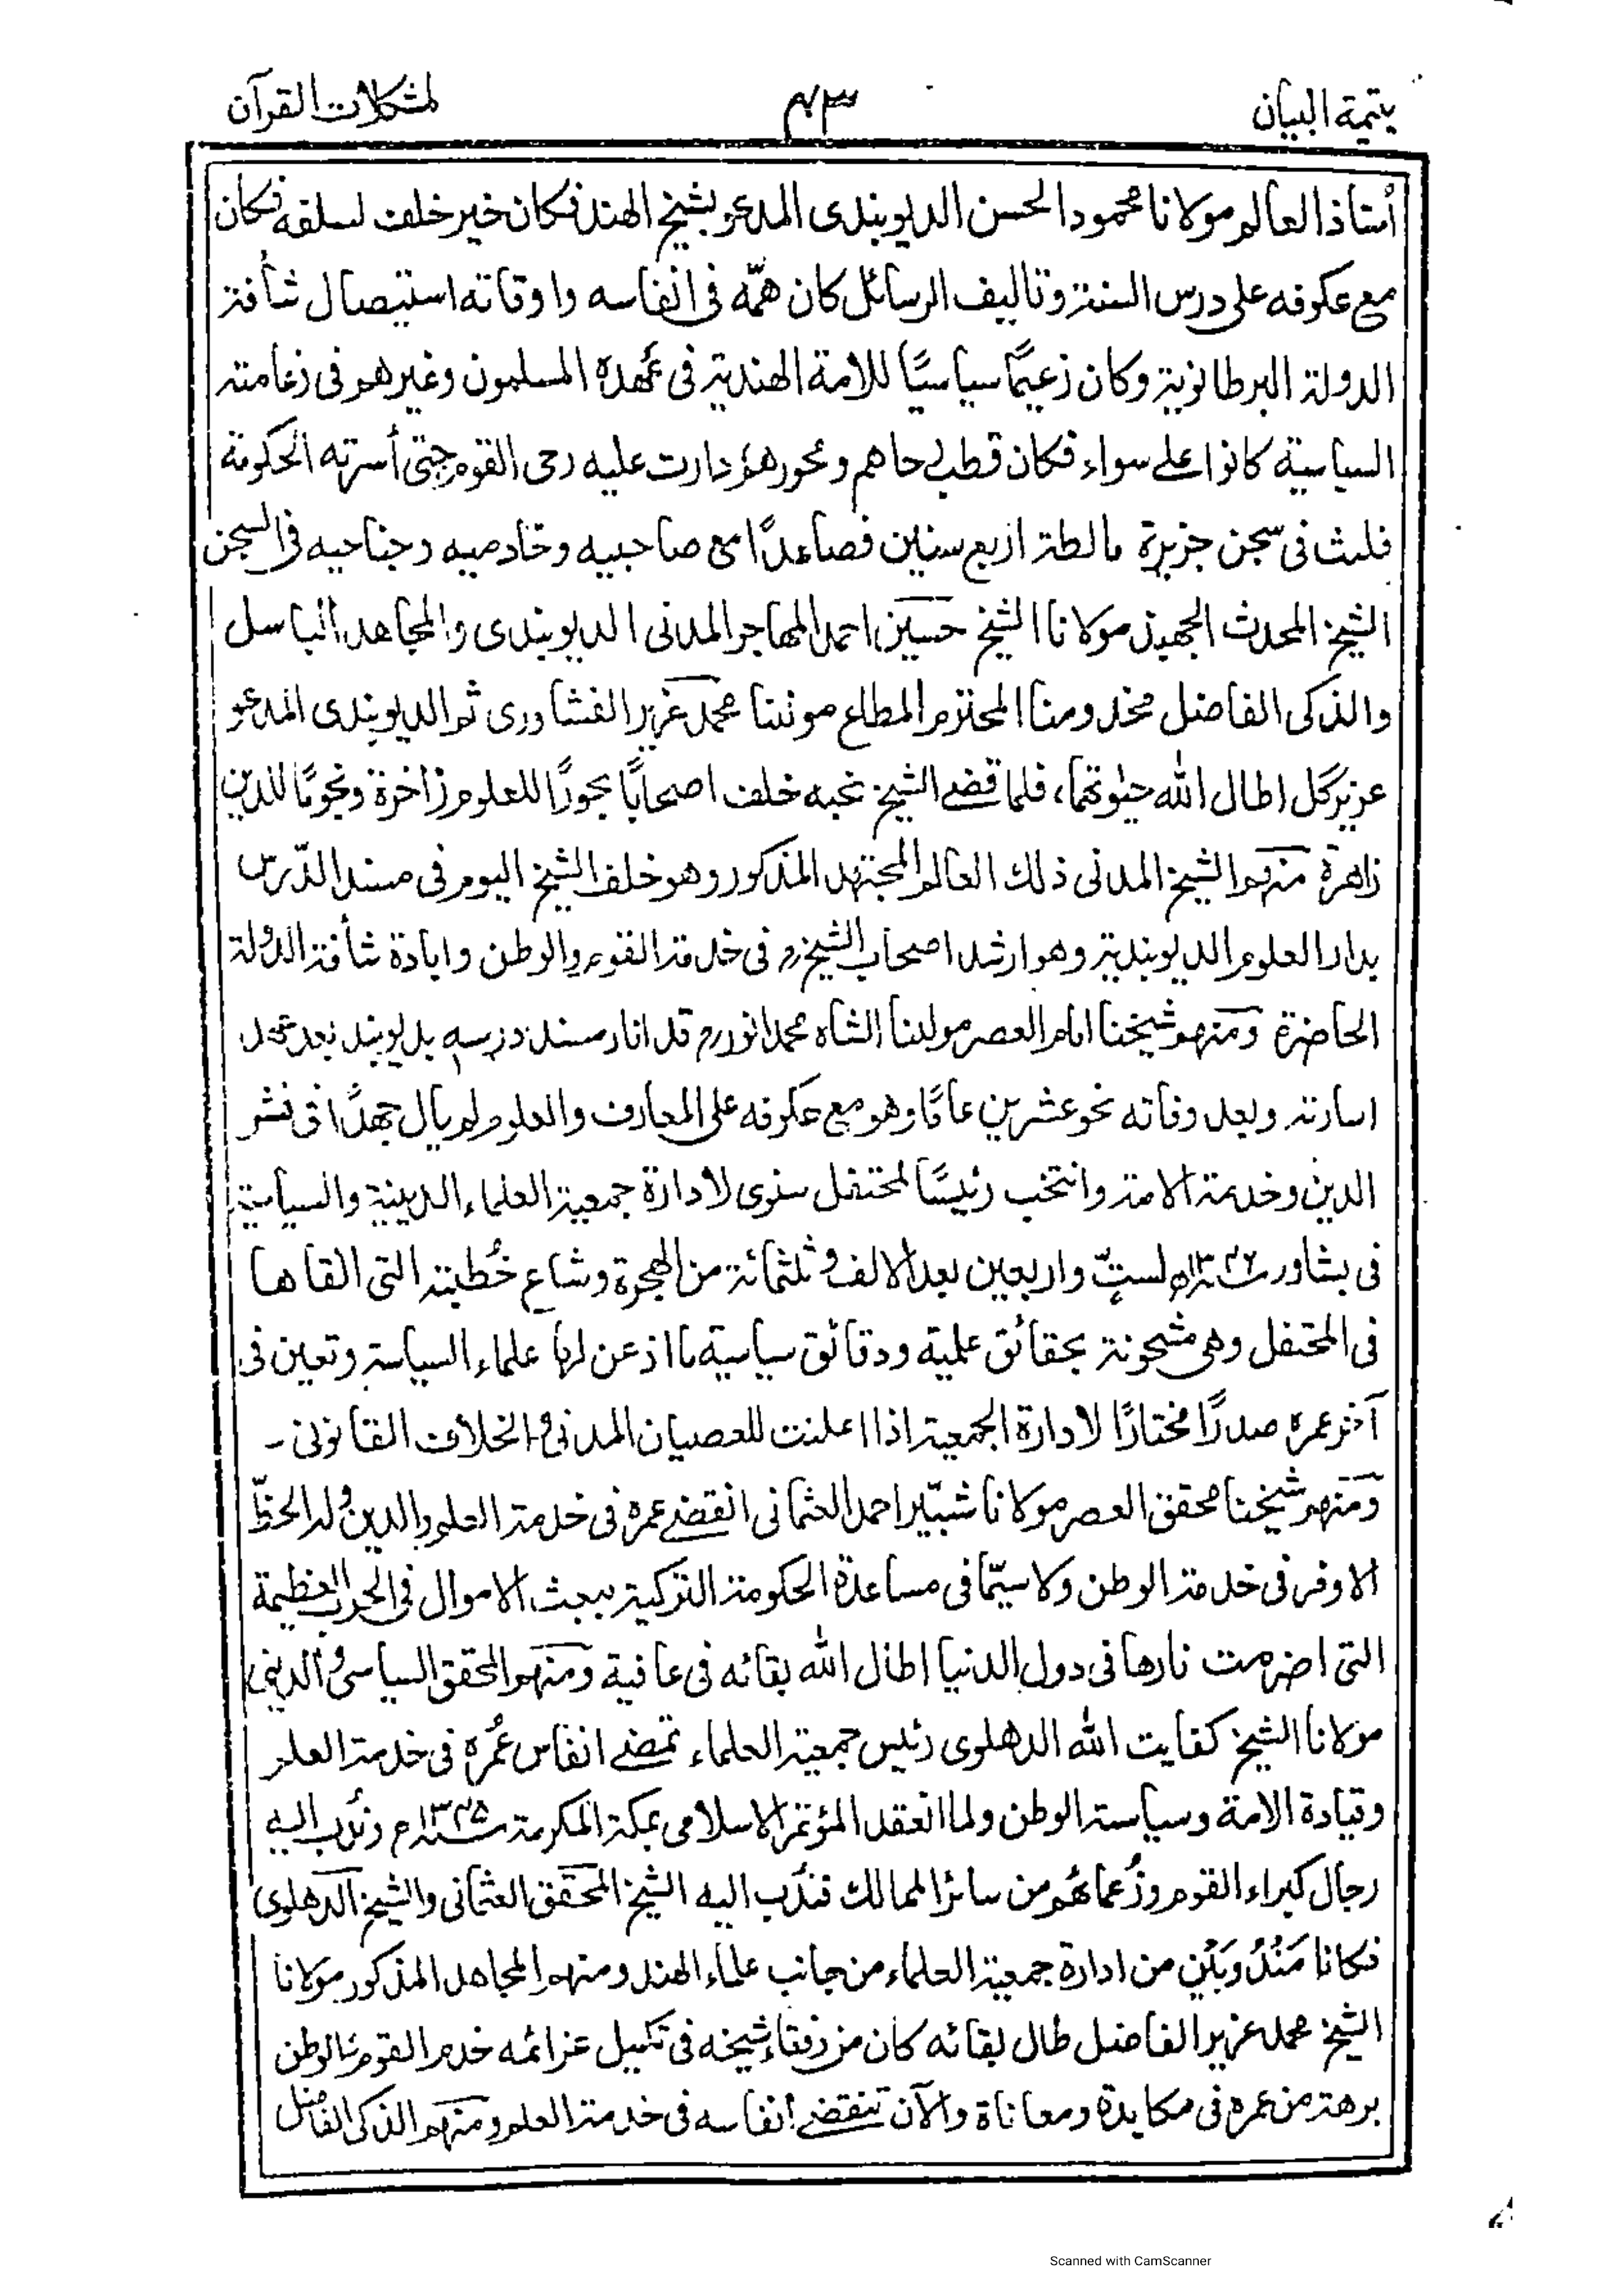 يتيمة البيان
٤٣
لمشكلات القرآن
أستاذ العالم مولانا محمود الحسن الديوبندى المدعو بشيخ الهند فكان خير خلف لسلفه فكان
مع عكوفه على درس السنة وتاليف الرسائل كان همّه فى انفاسه واوقاته استيصال شأفة
الدولة البرطانوية وكان زعيمًا سياسيًا للامة الهندية فى عهده المسلمون وغيرهم فى زعامته
السياسية كانوا على سواء فكان قطب رحاهم ومحورهم دارت عليه رحى القوم حتى أسرته الحكومة
فلبث فى سجن جزيرة مالطة اربع سنين فصاعدًا مع صاحبيه وخادميه وجناحيه فى السجن
الشيخ المحدث الجهبذ مولانا الشيخ حسين احمد المهاجر المدنى الديوبندى والمجاهد الباسل
والذكى الفاضل مخدومنا المحترم المطاع مولٰنا محمد عزير الفشاورى ثم الديوبندى المدعو
عزير گل اطال الله حيٰوتهما، فلما قضى الشيخ نحبه خلف اصحابًا بحورًا للعلوم زاخرة ونجومًا للدين
زاهرة منهم الشيخ المدنى ذلك العالم المجتهد المذكور وهو خلف الشيخ اليوم فى مسند الدّرس
بدار العلوم الديوبندية وهو ارشد اصحاب الشيخ رح فى خدمة القوم والوطن وابادة شأفة الدولة
الحاضرة ومنهم شيخنا امام العصر مولٰنا الشاه محمد انور رح قد انار مسند درسه بديوبند بعد عهد
اسارته وبعد وفاته نحو عشرين عامًا وهو مع عكوفه على المعارف والعلوم لم يأل جهدًا فى نشر
الدين وخدمة الامة وانتخب رئيسًا لمحتفل سنوى لادارة جمعية العلماء الدينية والسياسية
فى بشاور سنة ١٣٤٦ھ لستٍّ واربعين بعد الالف وثلثمائة من الهجرة وشاع خُطبته التى القاها
فى المحتفل وهى مشحونة بحقائق علمية ودقائق سياسية ما اذعن لها علماء السياسة وتعين فى
آخر عمره صدرًا مختارًا لادارة الجمعية اذا اعلنت للعصيان المدنى والخلاف القانونى ۔
ومنهم شيخنا محقق العصر مولانا شبّير احمد العثمانى انقضى عمره فى خدمة العلم والدين وله الحظّ
الاوفر فى خدمة الوطن ولا سيّما فى مساعدة الحكومة التركية ببعث الاموال فى الحرب العظيمة
التى اضرمت نارها فى دول الدنيا اطال الله بقائه فى عافية ومنهم المحقق السياسى والدينى
مولانا الشيخ كفايت الله الدهلوى رئيس جمعية العلماء تمضى انفاس عُمره فى خدمة العلم
وقيادة الامة وسياسة الوطن ولما انعقد المؤتمر الاسلامى بمكة المكرمة سنة ١٣٤٥ھ ونُدب اليه
رجال كبراء القوم وزُعمائهم من سائر الممالك فنُدب اليه الشيخ المحقق العثمانى والشيخ الدهلوى
فكانا مَنْدُوبَيْن من ادارة جمعية العلماء من جانب علماء الهند ومنهم المجاهد المذكور مولانا
الشيخ محمد عزير الفاضل طال بقائه كان من رفقاء شيخه فى تكميل عزائمه خدم القوم والوطن
برهة من عمره فى مكابدة ومعاناة والآن تنقضى انفاسه فى خدمة العلم ومنهم الذكى الفاضل
Scanned with CamScanner